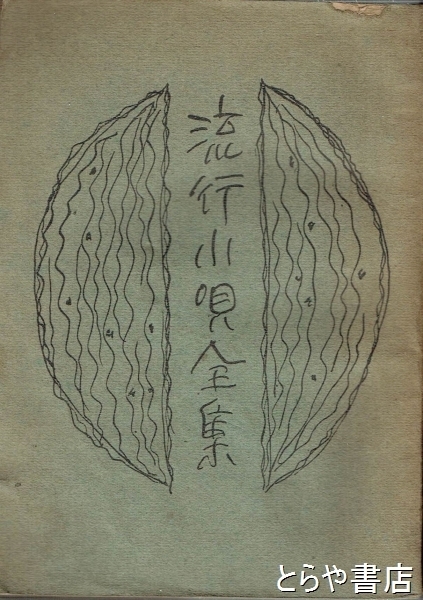 流行小唄全集
とらや書店